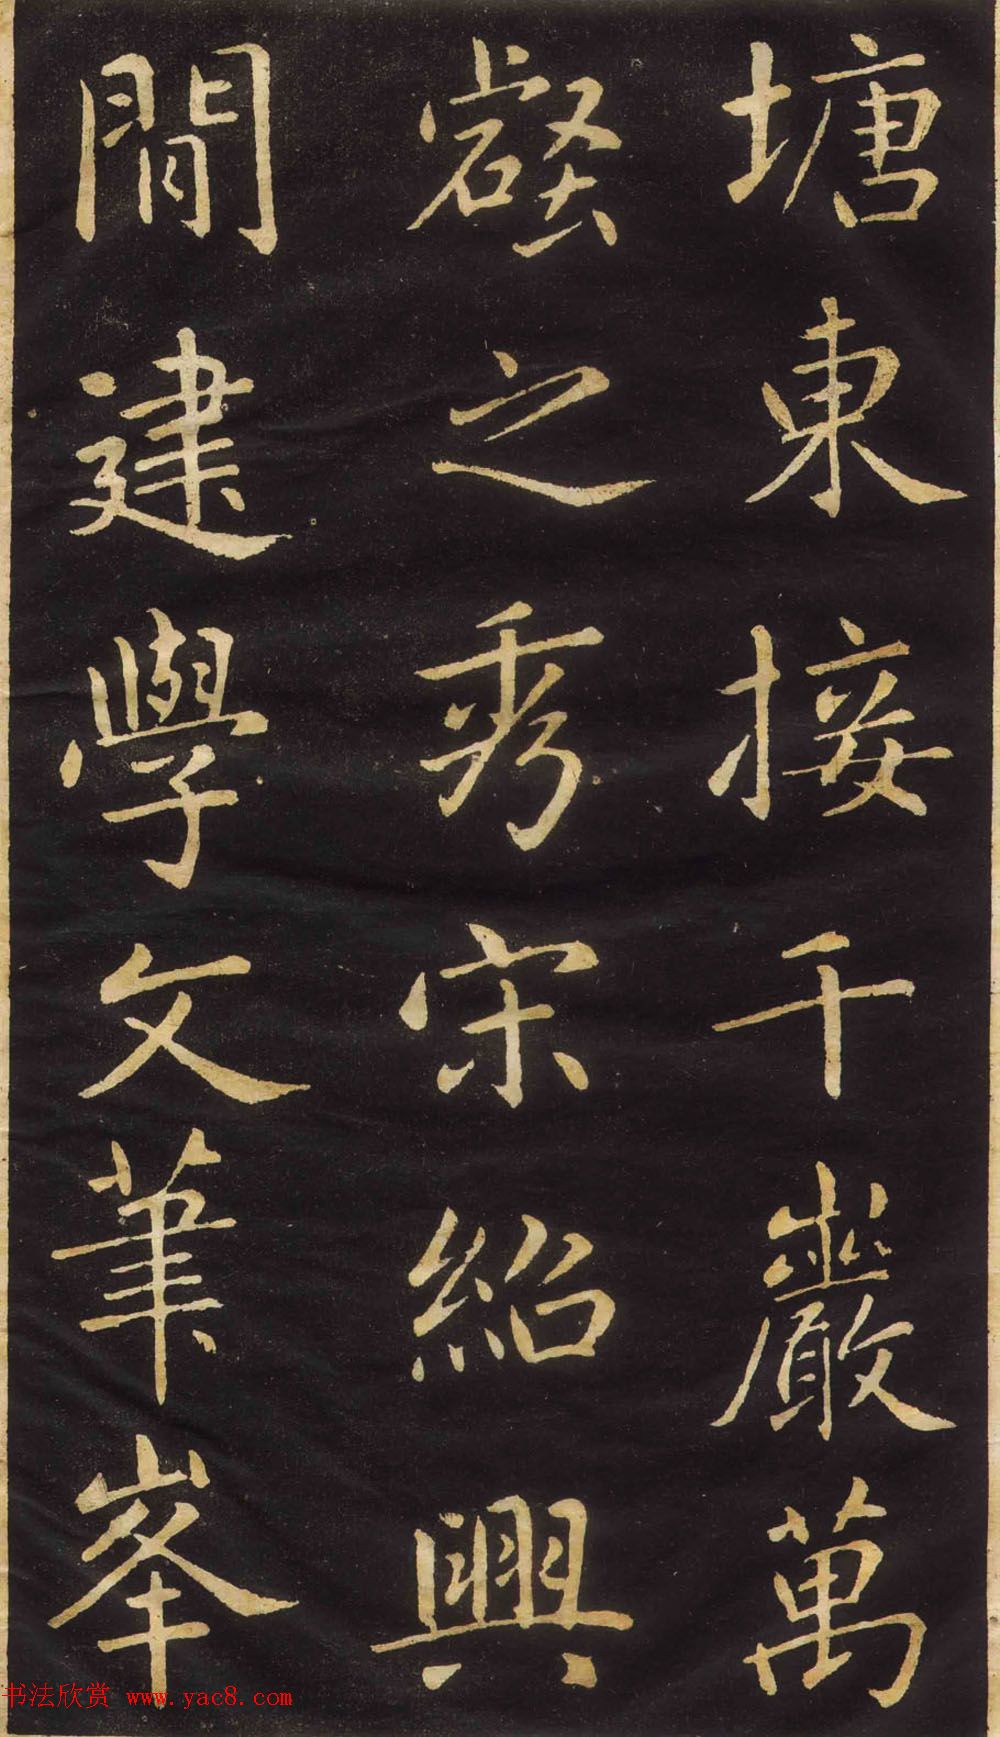 塘東接千巖萬
壑之秀宋紹興
間建學文筆峯
书法欣赏 www.yac8.com